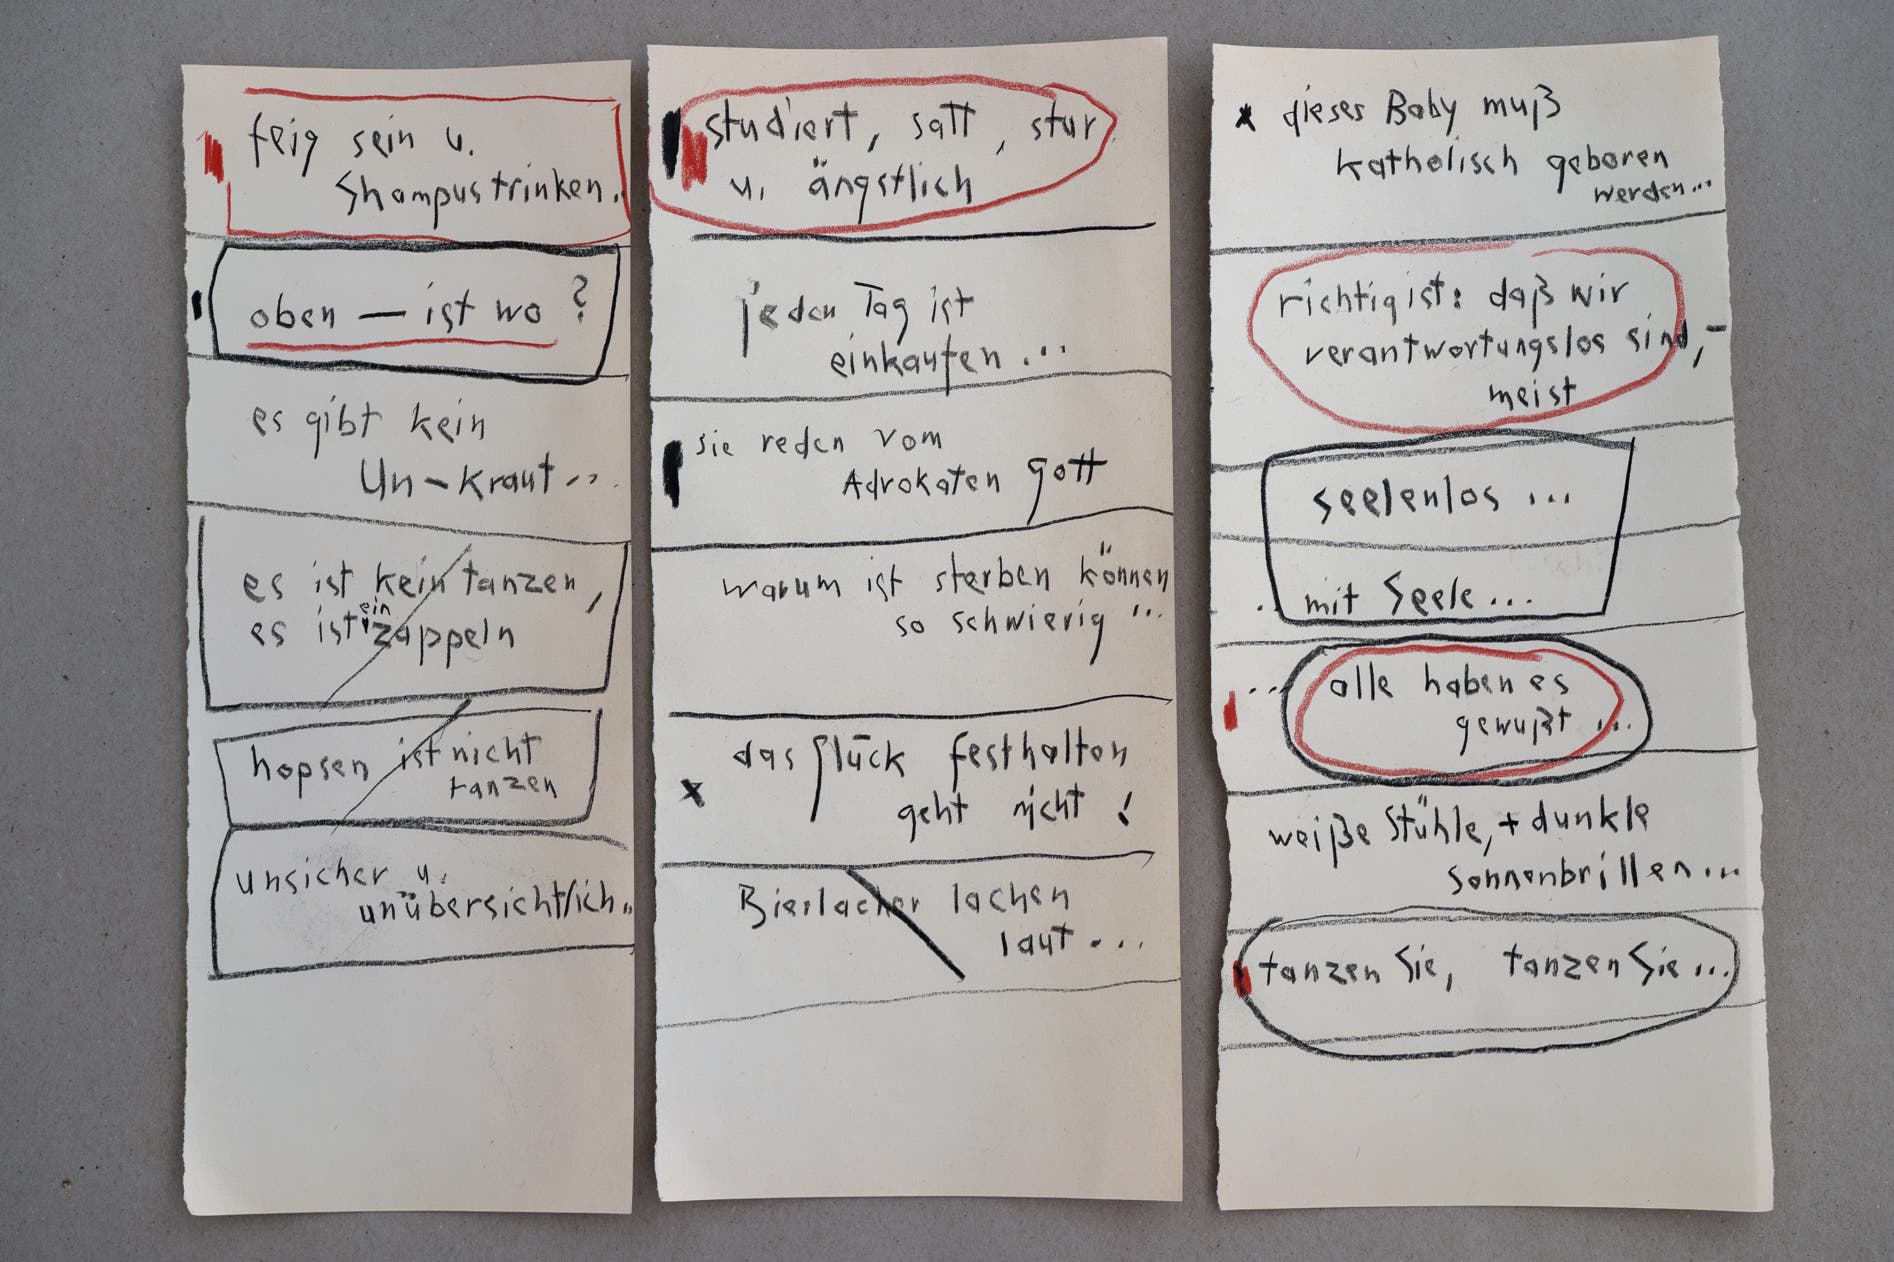 feig sein u.
Shampus trinken..
oben — ist wo ?
es gibt kein
Un-Kraut...
es ist kein tanzen,
es ist ein zappeln
hopsen ist nicht
tanzen
unsicher u.
unübersichtlich..
studiert, satt, stur
u. ängstlich
jeden Tag ist
einkaufen...
sie reden vom
Advokaten gott
warum ist sterben können
so schwierig ...
das glück festhalten
x geht nicht !
Bierlacher lachen
laut...
x dieses Baby muß
katholisch geboren
werden...
richtig ist: daß wir
verantwortungslos sind,-
meist
seelenlos ...
.. mit Seele...
... alle haben es
gewußt ...
weiße Stühle, + dunkle
Sonnenbrillen...
tanzen Sie, tanzen Sie...